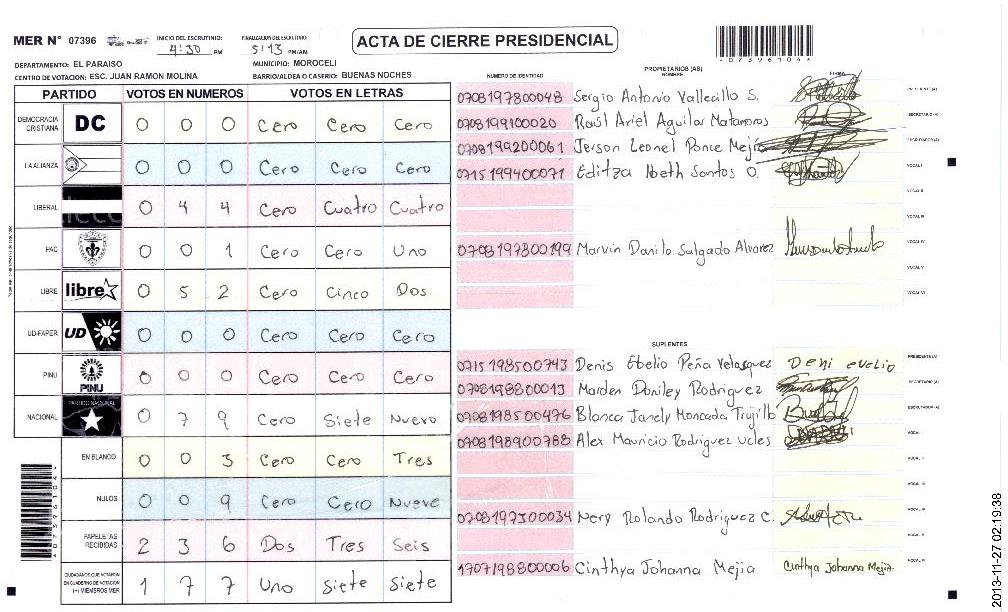 MER N° 07396
INICIO DEL ESCRUTINIO: 4:30 PM
FINALIZACION DEL ESCRUTINIO: 5:13 PM/AM
ACTA DE CIERRE PRESIDENCIAL
DEPARTAMENTO: EL PARAISO
MUNICIPIO: MOROCELI
CENTRO DE VOTACION: ESC. JUAN RAMON MOLINA
BARRIO/ALDEA O CASERIO: BUENAS NOCHES
PARTIDO VOTOS EN NUMEROS VOTOS EN LETRAS
DEMOCRACIA CRISTIANA DC 0 0 0 Cero Cero Cero
LA ALIANZA 0 0 0 Cero Cero Cero
LIBERAL 0 4 4 Cero Cuatro Cuatro
PAC 0 0 1 Cero Cero Uno
LIBRE libre 0 5 2 Cero Cinco Dos
UD-FAPER UD 0 0 0 Cero Cero Cero
PINU PINU 0 0 0 Cero Cero Cero
NACIONAL PARTIDO NACIONAL 0 7 9 Cero Siete Nuevo
EN BLANCO 0 0 3 Cero Cero Tres
NULOS 0 0 9 Cero Cero Nueve
PAPELETAS RECIBIDAS 2 3 6 Dos Tres Seis
CIUDADANOS QUE VOTARON EN CUADERNO DE VOTACION (+) MIEMBROS MER 1 7 7 Uno Siete Siete
PROPIETARIOS (AS)
NUMERO DE IDENTIDAD NOMBRE FIRMA
0708197800048 Sergio Antonio Vallecillo S. PRESIDENTE (A)
0708199100020 Raúl Ariel Aguilar Matamoros SECRETARIO (A)
0708199200061 Jerson Leonel Ponce Mejia ESCRUTADOR (A)
0715199400071 Editza Noeth Santos O. VOCAL I
VOCAL II
VOCAL III
0708197800199 Marvin Danilo Salgado Alvarez VOCAL IV
VOCAL V
VOCAL VI
SUPLENTES
0715198500743 Denis Ebelio Peña Velasquez Deni evelio PRESIDENTE (A)
0708198800013 Marden Daniley Rodriguez SECRETARIO (A)
0708198500476 Blanca Janely Moncada Trujillo ESCRUTADOR (A)
0708198900788 Alex Mauricio Rodriguez ucles VOCAL I
VOCAL II
VOCAL III
0708197300034 Nery Rolando Rodriguez C. VOCAL IV
VOCAL V
1707198800006 Cinthya Johanna Mejia Cinthya Johanna Mejia VOCAL VI
2013-11-27 02:19:38